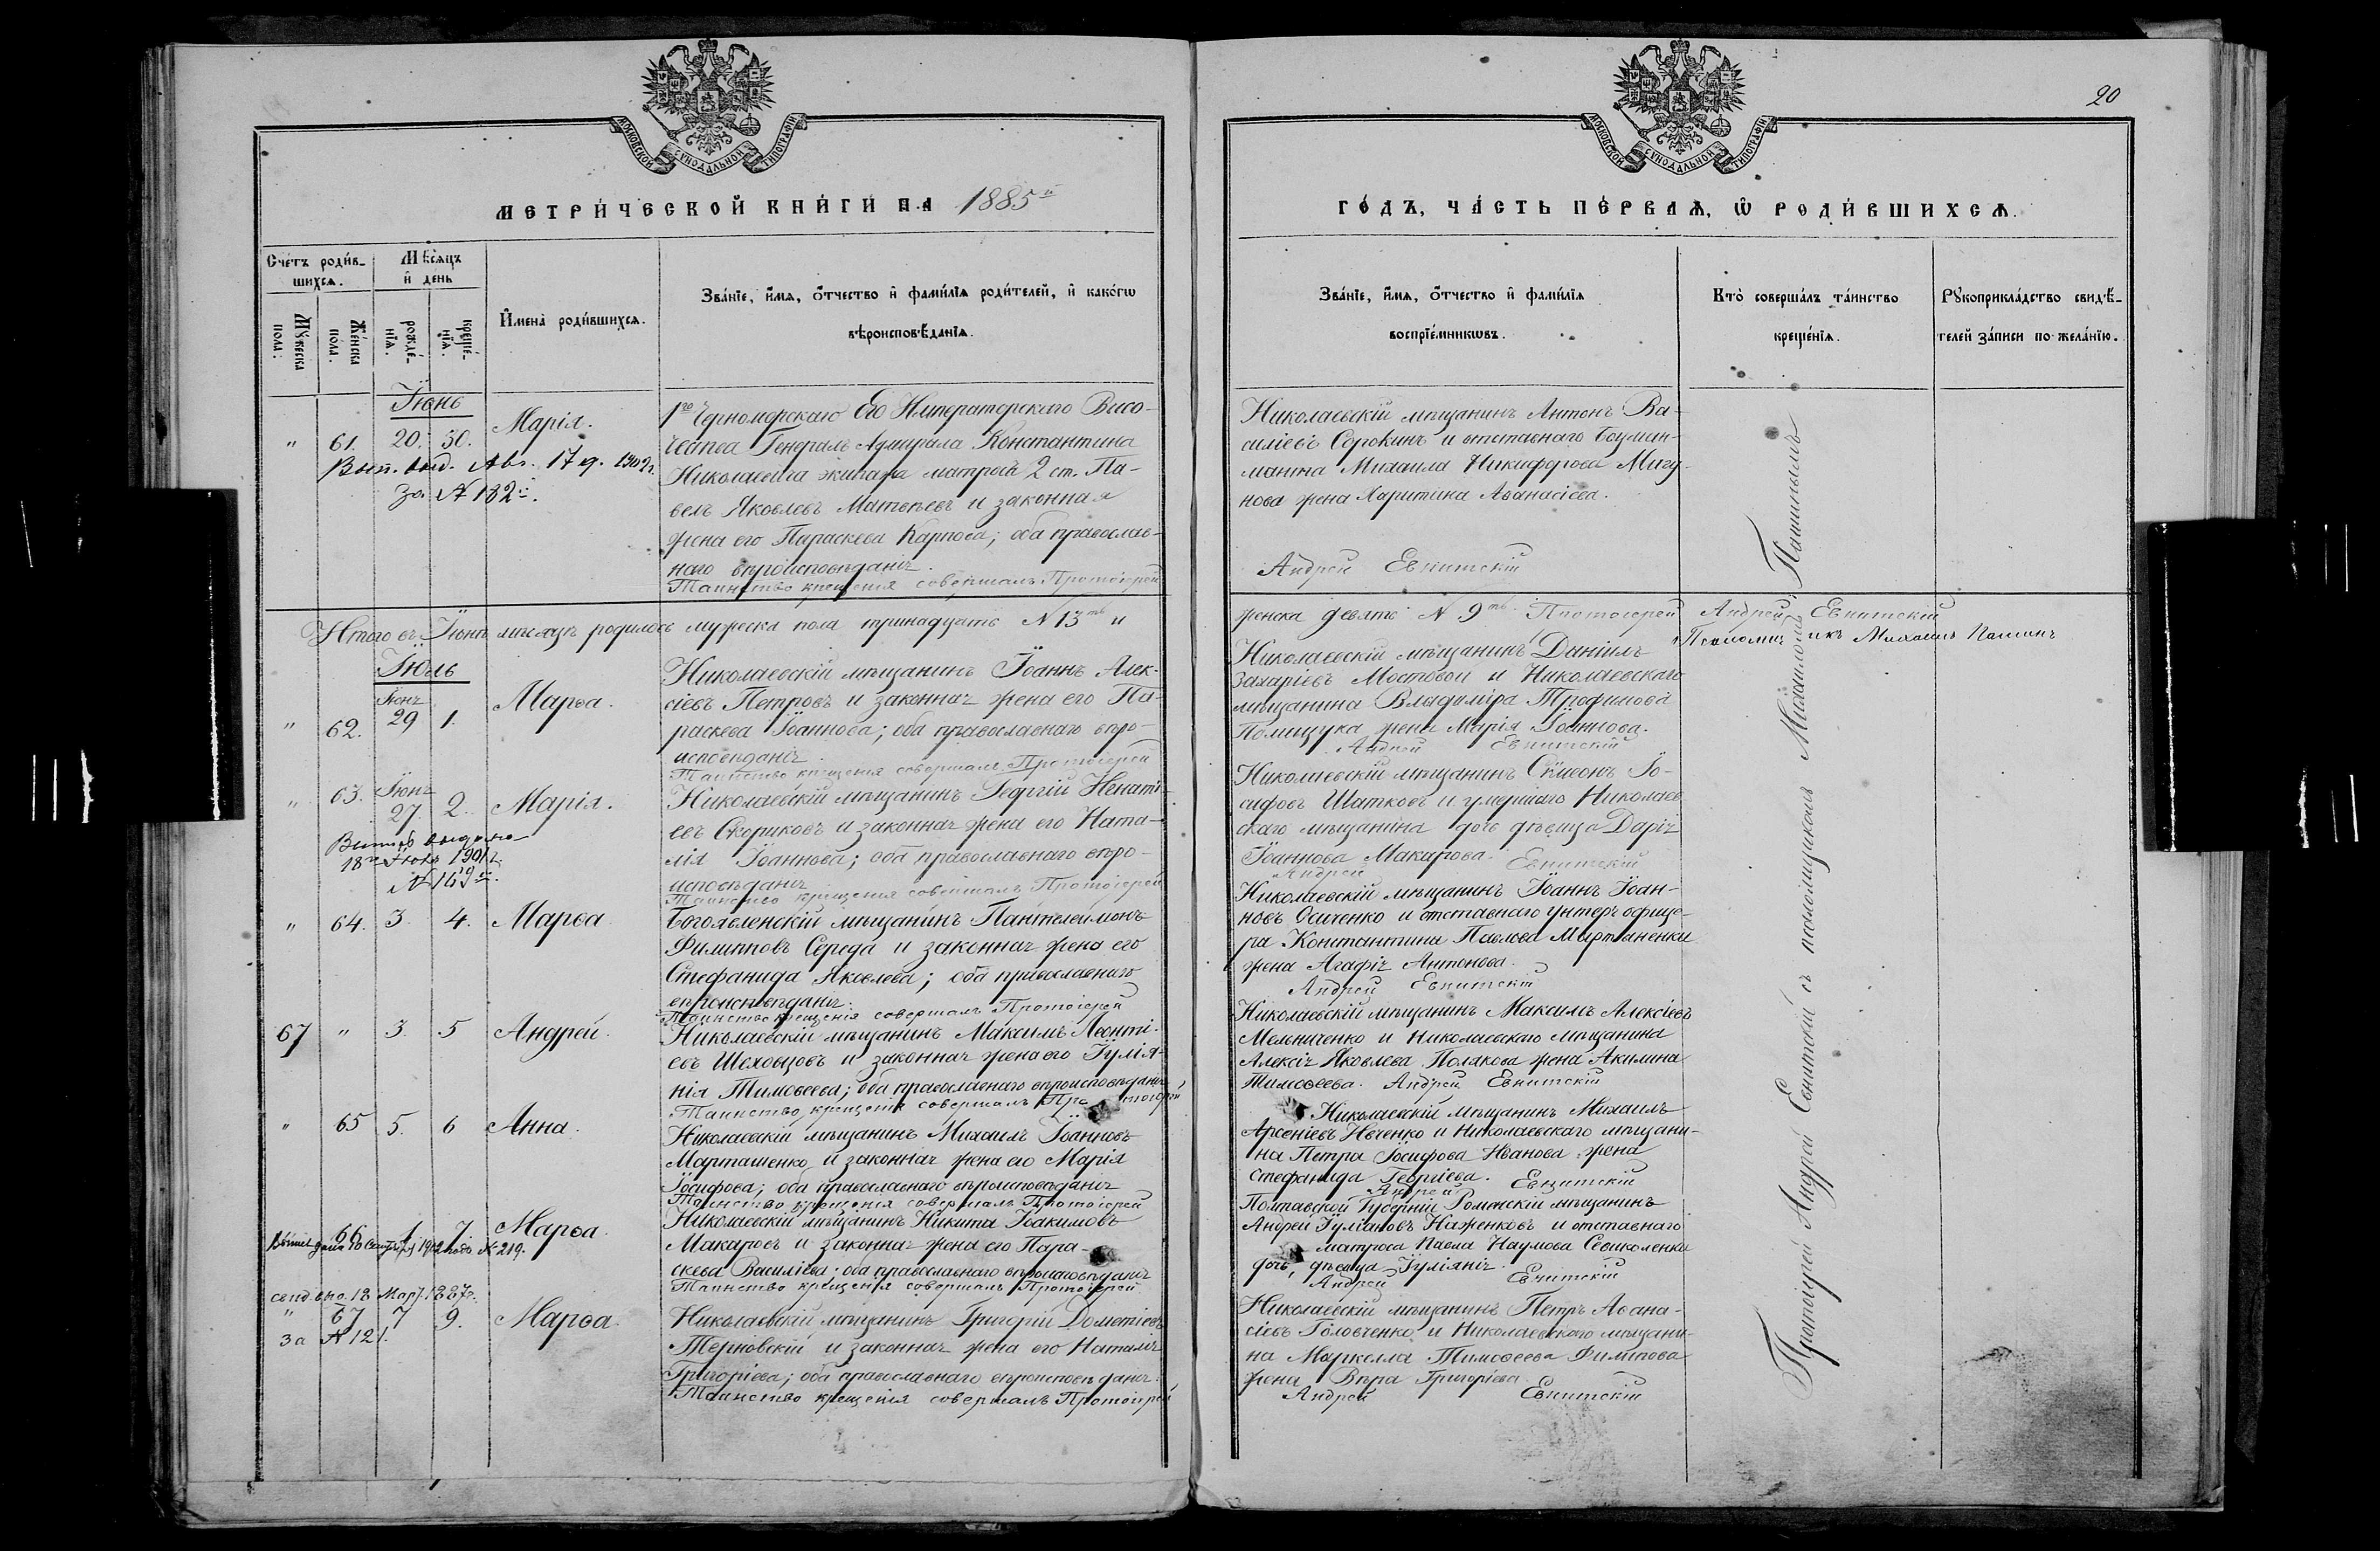 МОСКОВСКОЙ СѴНОДАЛЬНОЙ ТИПОГРАФІИ
МЕТРИ́ЧЕСКОЙ КНИ́ГИ НА 1885й
Счéтъ роди́в-
шихсѧ.
Мѣ́сѧцъ
и҆ де́нь
Мꙋ́жеска
пола:
Же́нска
по́ла.
рожде́-
нїѧ.
креще́-
нїѧ.
И҆мена̀ роди́вшихсѧ.
Зва́нїе, и҆́мѧ, ѻ҆́тчество и҆ фами́лїѧ роди́телей, и҆ како́гѡ
вѣроисповѣ́данїѧ.
Іюнь
" 61. 20. 30. Марія.
Вып. выд. Авг. 17 д. 1902 г.
За № 182й.
1го Черноморскаго Его Императорскаго Высо-
чества Генералъ Адмирала Константина
Николаевича экипажа матросъ 2 ст. Па-
велъ Яковлевъ Матвѣевъ и законная
жена его Параскева Карпова; оба православ-
наго вѣроисповѣданія.
Таинство крещенія совершалъ Протоіерей
Итого въ Іюнѣ мѣсяцѣ родилось мужеска пола тринадцать № 13ть и
Іюль
Іюня
" 62. 29 1. Марѳа.
Николаевскій мѣщанинъ Іоаннъ Алек-
сіевъ Петровъ и законная жена его Па-
раскева Іоаннова; оба православнаго вѣро-
исповѣданія.
Таинство крещенія совершалъ Протоіерей
Іюня
" 63. 27. 2. Марія.
Выпись выдана
18го Іюля 1901 г.
№ 149й.
Николаевскій мѣщанинъ Георгій Игнаті-
евъ Скориковъ и законная жена его Ната-
лія Іоаннова; оба православнаго вѣро-
исповѣданія
Таинство крещенія совершалъ Протоіерей
" 64. 3. 4. Марѳа.
Богоявленскій мѣщанинъ Пантелеймонъ
Филипповъ Середа и законная жена его
Стефанида Яковлева; оба православнаго
вѣроисповѣданія.
Таинство крещенія совершалъ Протоіерей
67 " 3. 5 Андрей.
Николаевскій мѣщанинъ Максимъ Леонті-
евъ Шеховцовъ и законная жена его Іуліа-
нія Тимоѳеева; оба православнаго вѣроисповѣданія
Таинство крещенія совершалъ Протоіерей
" 65 5. 6 Анна.
Николаевскій мѣщанинъ Михаилъ Іоанновъ
Марташенко и законная жена его Марія
Іосифова; оба православнаго вѣроисповѣданія
Таинство крещенія совершалъ Протоіерей
66 7. Марѳа.
10 1912 года № 219.
Николаевскій мѣщанинъ Никита Іоакимовъ
Макаровъ и законная жена его Пара-
скева Василіева; оба православнаго вѣроисповѣданія
Таинство крещенія совершалъ Протоіерей
18 Мар. 1887 г.
" 67 7 9. Марѳа.
За № 121.
Николаевскій мѣщанинъ Григорій Дометіевъ
Терновскій и законная жена его Наталія
Григоріева; оба православнаго вѣроисповѣданія.
Таинство крещенія совершалъ Протоіерей
20
МОСКОВСКОЙ СѴНОДАЛЬНОЙ ТИПОГРАФІИ
ГО́ДЪ, ЧА́СТЬ ПЕ́РВАѦ, Ѡ҆ РОДИ́ВШИХСѦ.
Зва́нїе, и҆́мѧ, ѻ҆́тчество и҆ фами́лїѧ
воспрїе́мникѡвъ.
Кто̀ соверша́лъ та́инство
креще́нїѧ.
Рꙋкоприкла́дство свидѣ́-
телей за́писи по жела́нїю.
Николаевскій мѣщанинъ Антонъ Ва-
силіевъ Сорокинъ и отставнаго боцман-
мана Михаила Никифорова Мигу-
нова жена Харитина Аѳанасіева.
Андрей Евнитскій
женска девять № 9ть. Протоіерей Андрей Евнитскій
Псаломщикъ Михаилъ
Николаевскій мѣщанинъ Даніилъ
Захаріевъ Мостовой и Николаевскаго
мѣщанина Владиміра Трофимова
Полищука жена Марія Іоаннова.
Андрей Евнитскій
Николаевскій мѣщанинъ Симеонъ Іо-
сифовъ Шатковъ и умершаго Николаев-
скаго мѣщанина дочь дѣвица Дарія
Іоаннова Макарова.
Андрей Евнитскій
Николаевскій мѣщанинъ Іоаннъ Іоан-
новъ Осиченко и отставнаго унтеръ офице-
ра Константина Павлова Мартыненки
жена Агафія Антонова.
Андрей Евнитскій
Николаевскій мѣщанинъ Максимъ Алексіевъ
Мельниченко и Николаевскаго мѣщанина
Алексія Яковлева Полякова жена Акилина
Тимоѳеева. Андрей Евнитскій
Николаевскій мѣщанинъ Михаилъ
Арсеніевъ Ивченко и Николаевскаго мѣщани-
на Петра Іосифова Иванова жена
Стефанида Георгіева.
Андрей Евнитскій
Полтавской Губерніи Роменскій мѣщанинъ
Андрей Іуліановъ Наженковъ и отставнаго
матроса Павла Наумова Севиколенки
дочь, дѣвица Іуліанія.
Андрей Евнитскій
Николаевскій мѣщанинъ Петръ Аѳана-
сіевъ Головченко и Николаевскаго мѣщани-
на Маркелла Тимоѳеева Филипова
жена Вѣра Григоріева.
Андрей Евнитскій
Протоіерей Андрей Евнитскій съ псаломщикомъ Михаиломъ